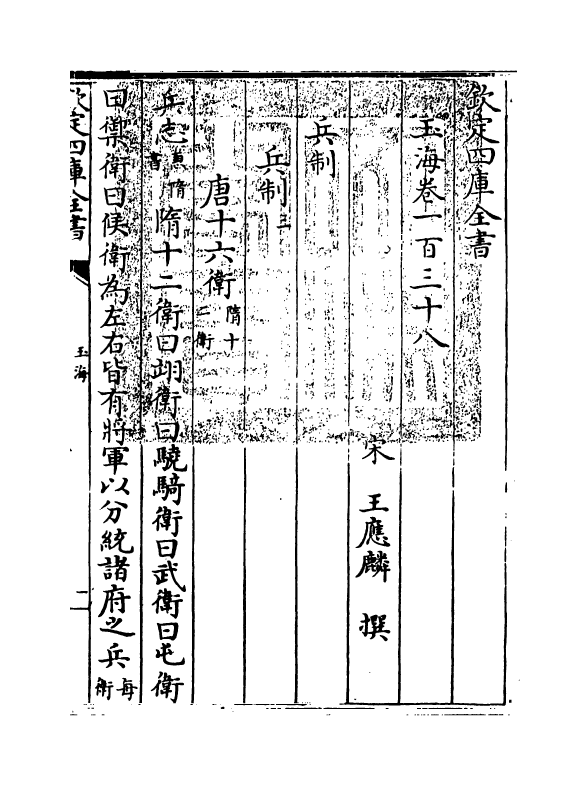 欽定四庫全書
玉海卷一百三十八
宋 王應麟 撰
兵制
兵制三
唐十六衛 隋十二衛
兵志 隋書 隋十二衛曰翊衛曰驍騎衛曰武衛曰屯衛
曰禦衛曰侯衛為左右皆有將軍以分統諸府之兵 每衛
欽定四庫全書 玉海